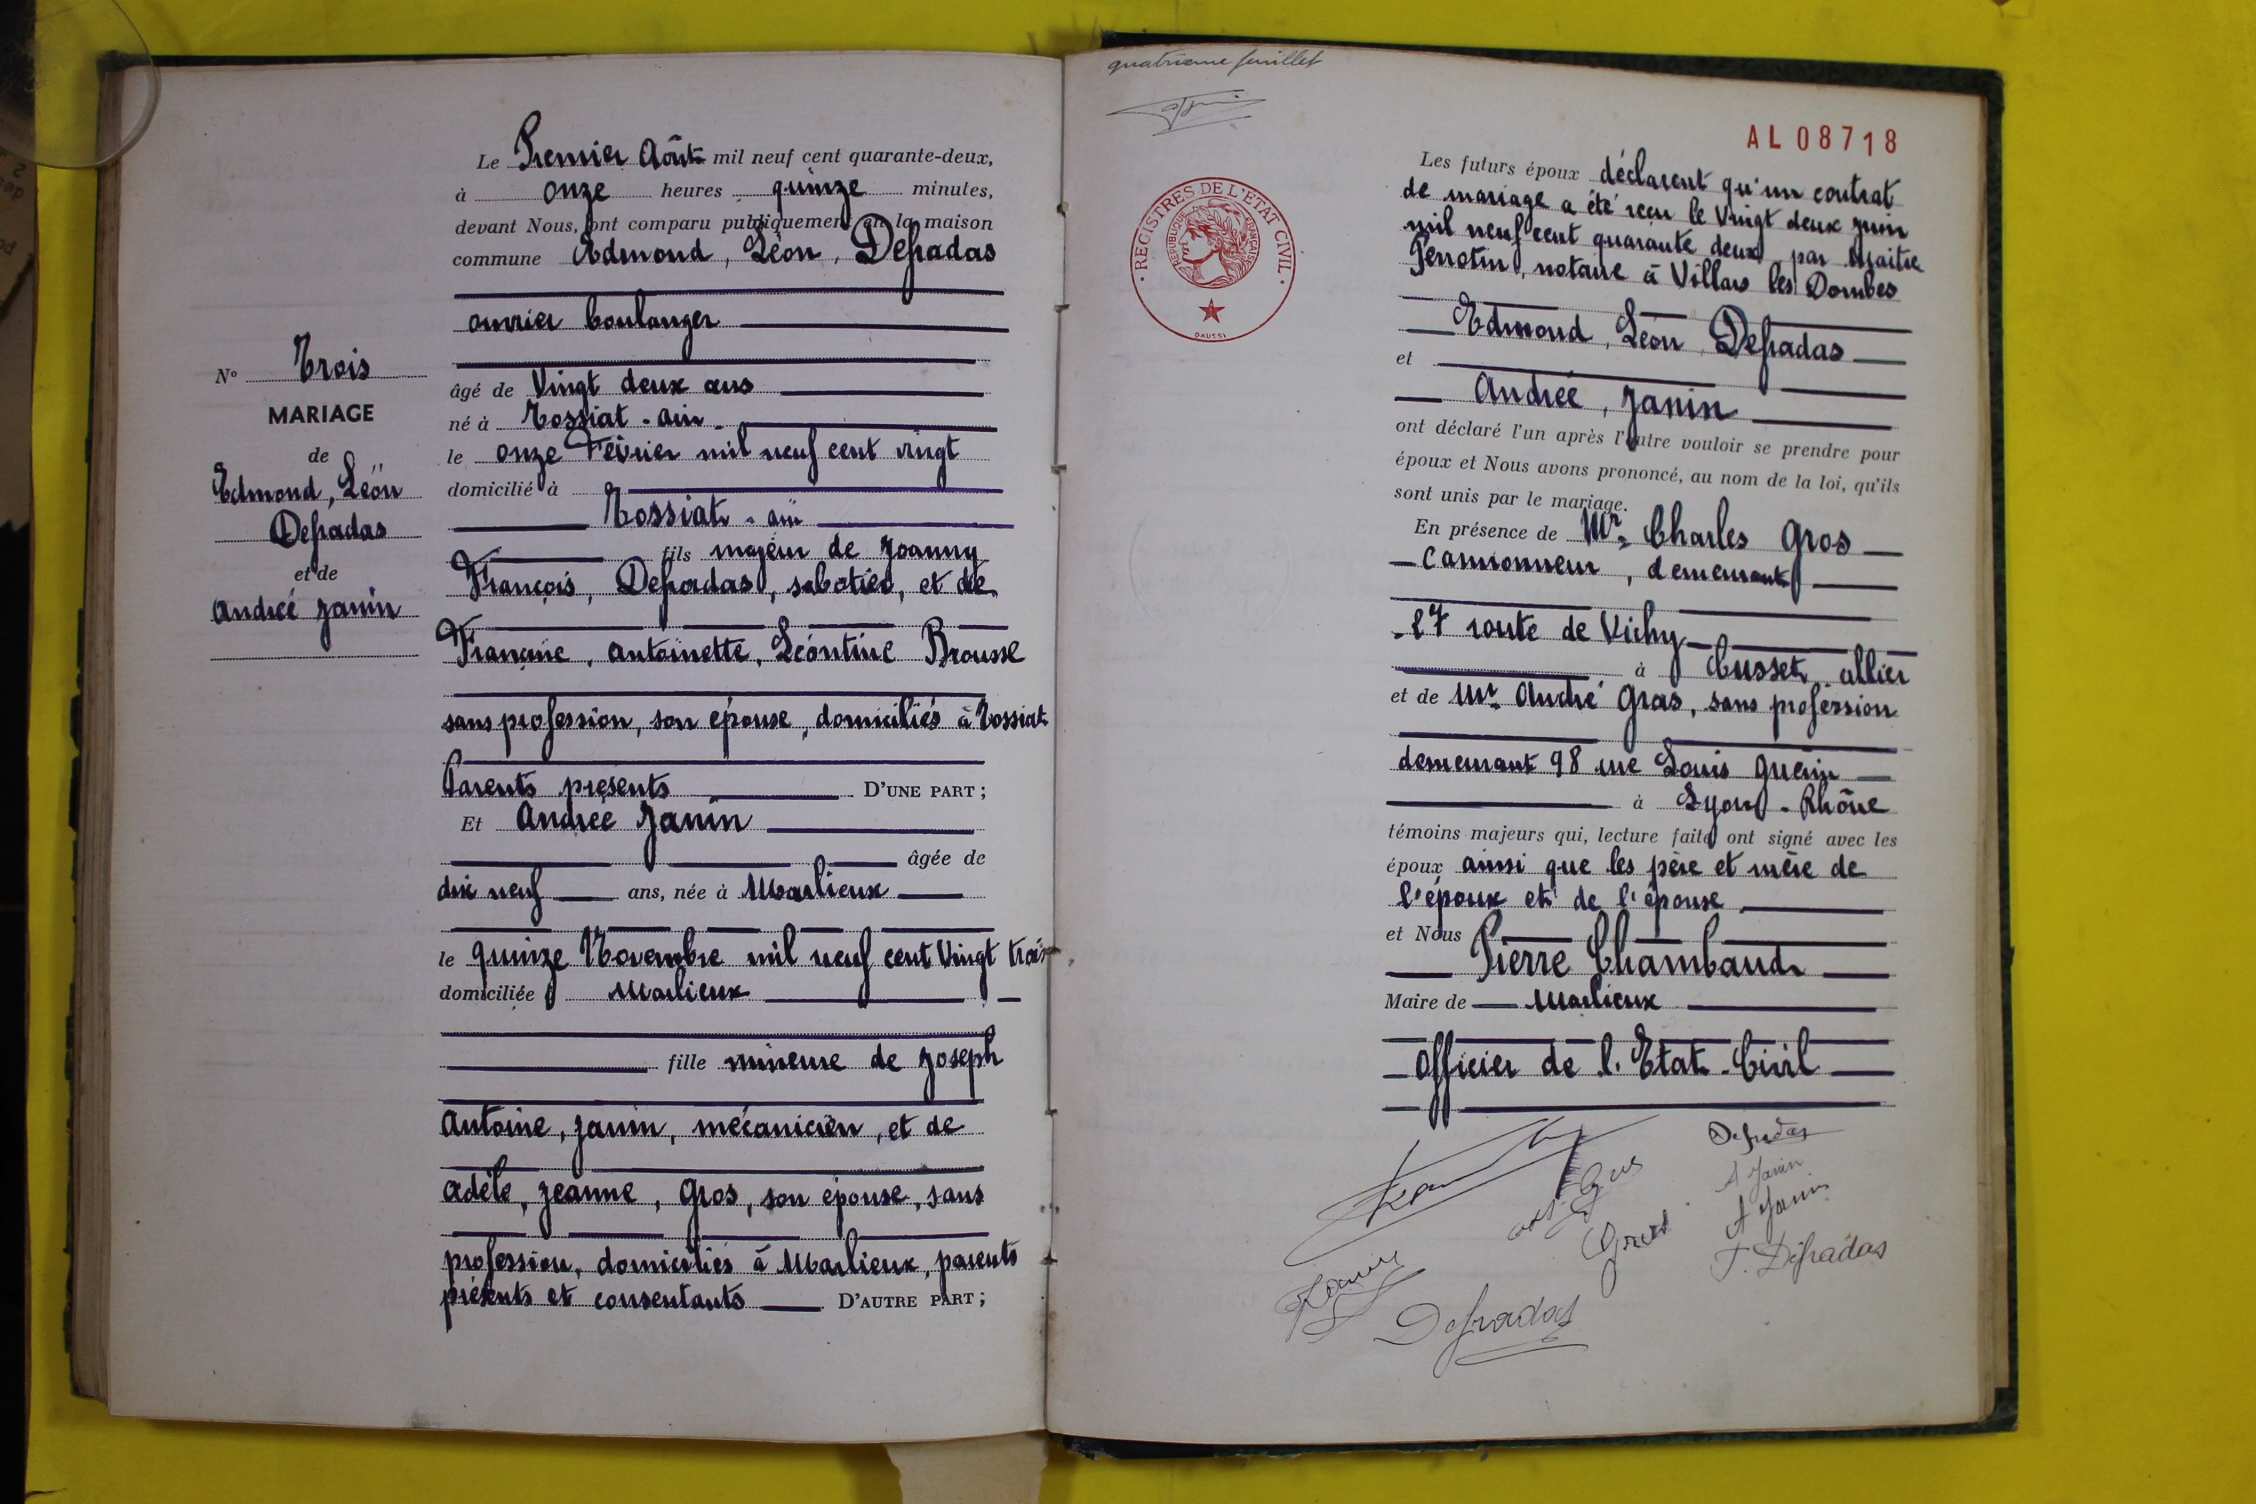 Le Premier Août mil neuf cent quarante-deux,
à onze heures quinze minutes,
devant Nous, ont comparu publiquement en la maison
commune Edmond, Léon, Defradas
ouvrier boulanger
âgé de Vingt deux ans
né à Tossiat - ain
le onze Février mil neuf cent vingt
domicilié à
Tossiat - ain
fils majeur de Joanny
François, Defradas, sabotier, et de
Francine, Antoinette, Léontine Brousse
sans profession, son épouse, domiciliés à Tossiat
Parents présents D'UNE PART ;
Et Andrée Janin
âgée de
dix neuf ans, née à Marlieux
le quinze Novembre mil neuf cent Vingt trois
domiciliée Marlieux
fille mineure de Joseph
Antoine, Janin, mécanicien, et de
Adèle, Jeanne, Gros, son épouse, sans
profession, domiciliés à Marlieux, parents
présents et consentants D'AUTRE PART ;
N° Trois
MARIAGE
de
Edmond, Léon
Defradas
et de
Andrée Janin
quatrième feuillet
AL 08718
· REGISTRES DE L'ETAT CIVIL ·
REPUBLIQUE FRANÇAISE
DAUSSI
Les futurs époux déclarent qu'un contrat
de mariage a été reçu le Vingt deux juin
mil neuf cent quarante deux par Maitre
notaire à Villars les Dombes
Edmond, Léon, Defradas
et
Andrée, Janin
ont déclaré l'un après l'autre vouloir se prendre pour
époux et Nous avons prononcé, au nom de la loi, qu'ils
sont unis par le mariage.
En présence de Mr. Charles Gros
camionneur, demeurant
27 route de Vichy
à Cusset, allier
et de Mr. André Gras, sans profession
demeurant 98 rue Louis Guérin
à Lyon - Rhône
témoins majeurs qui, lecture faite, ont signé avec les
époux ainsi que les père et mère de
l'époux et de l'épouse
et Nous
Pierre Chambaud
Maire de Marlieux
Officier de l'Etat-Civil
Defradas
A Janin
A Janin
Gros
F. Defradas
Janin
Defradas